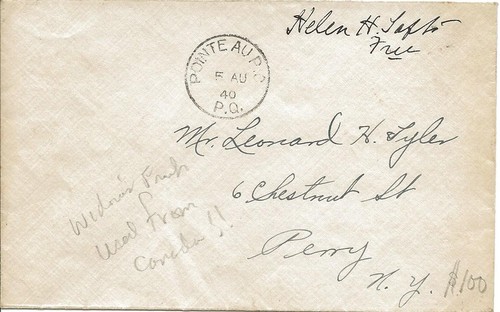 Helen H. Taft
Free
POINTE AU P.C
5 AU
40
P.Q.
Mr. Leonard H. Tyler
6 Chestnut St
Perry
N. Y.
Widow's Frank
Used From
Canada !!
$100